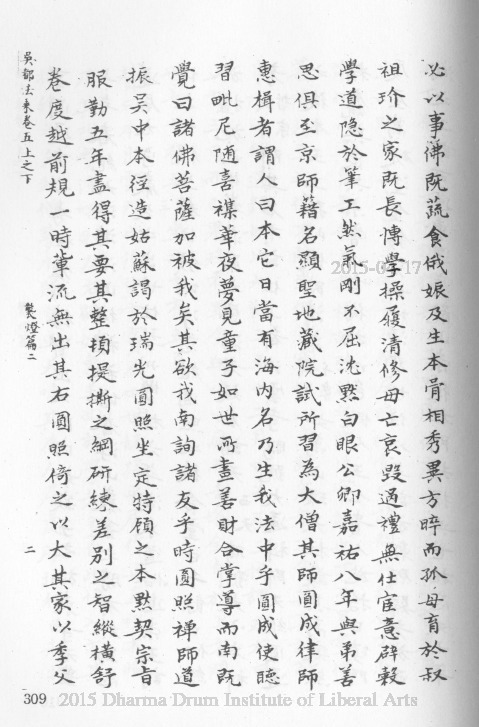 必以事佛既蔬食俄娠及生本骨相秀異方晬而孤母育於叔
祖玠之家既長博學操履清修母亡哀毀過禮無仕宦意辟穀
學道隐於筆工然氣剛不屈沈默白眼公卿嘉祐八年與弟善
思俱至京師籍名顯聖地藏院試所習為大僧其師圓成律師
惠楫者謂人曰本它日當有海內名乃生我法中乎圓成使聽
習毗尼随喜襍華夜夢見童子如世所畫善財合掌導而南既
覺曰諸佛菩薩加被我矣其欲我南詢諸友乎時圓照禅師道
振吳中本徑造姑蘇謁於瑞光圓照坐定特顧之本默契宗旨
服勤五年盡得其要其整頓提撕之綱研練差別之智縱橫舒
卷度越前規一時軰流無出其右圓照倚之以大其家以季父
吳都法乘卷五上之下
熒燈篇二
二
309
2015 Dharma Drum Institute of Liberal Arts